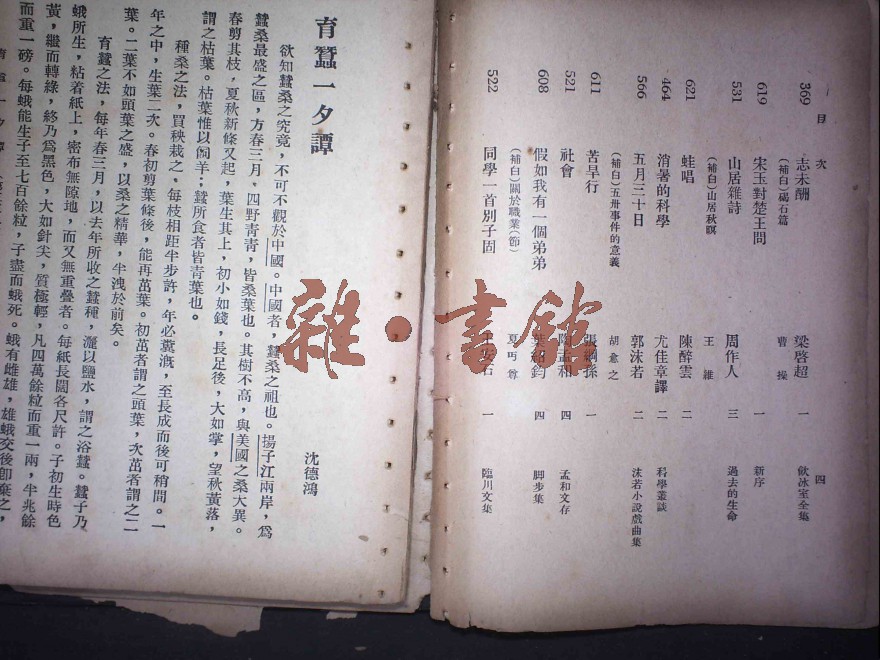 目次 四
369 志未酬 梁啓超 一 飲冰室全集
(補白)碣石篇 曹操
619 宋玉對楚王問 一 新序
531 山居雜詩 周作人 三 過去的生命
(補白)山居秋暝 王維
621 蛙唱 陳醉雲 二
464 消暑的科學 尤佳章譯 二 科學叢談
566 五月三十日 郭沫若 二 沫若小說戲曲集
(補白)五卅事件的意義 胡愈之
611 苦旱行 張綱孫 一
521 社會 陶孟和 四 孟和文存
608 假如我有一個弟弟 葉紹鈞 四 脚步集
(補白)關於職業(節) 夏丏尊
522 同學一首別子固 王安石 一 臨川文集
育蠶一夕譚
沈德鴻
欲知蠶桑之究竟,不可不觀於中國。中國者,蠶桑之祖也。揚子江兩岸,爲
蠶桑最盛之區,方春三月,四野青青,皆桑葉也。其樹不高,與美國之桑大異。
春剪其枝,夏秋新條又起,葉生其上,初小如錢,長足後,大如掌,望秋黃落,
謂之枯葉。枯葉惟以飼羊;蠶所食者皆青葉也。
種桑之法,買秧栽之,每枝相距半步許,年必糞漑,至長成而後可稍間。一
年之中,生葉二次。春初剪葉條後,能再茁葉。初茁者謂之頭葉,次茁者謂之二
葉。二葉不如頭葉之盛,以桑之精華,半洩於前矣。
育蠶之法,每年春三月,以去年所收之蠶種,灑以鹽水,謂之浴蠶。蠶子乃
蛾所生,粘着紙上,密布無隙地,而又無重疊者。每紙長闊各尺許。子初生時色
黃,繼而轉綠,終乃爲黑色,大如針尖,質極輕,凡四萬餘粒而重一兩,半兆餘
而重一磅。每蛾能生子至七百餘粒,子盡而蛾死。蛾有雌雄,雄蛾交後卽棄之,
育蠶一夕譚
雜·書館